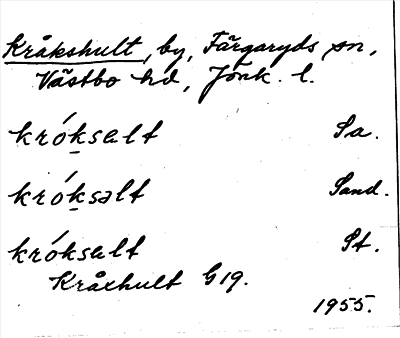 Kråkshult, by, Färgaryds sn,
Västbo hd, Jönk. l.
króksalt Sa.
króksəlt Sand.
króksalt St.
Kråxhult G19.
1955.